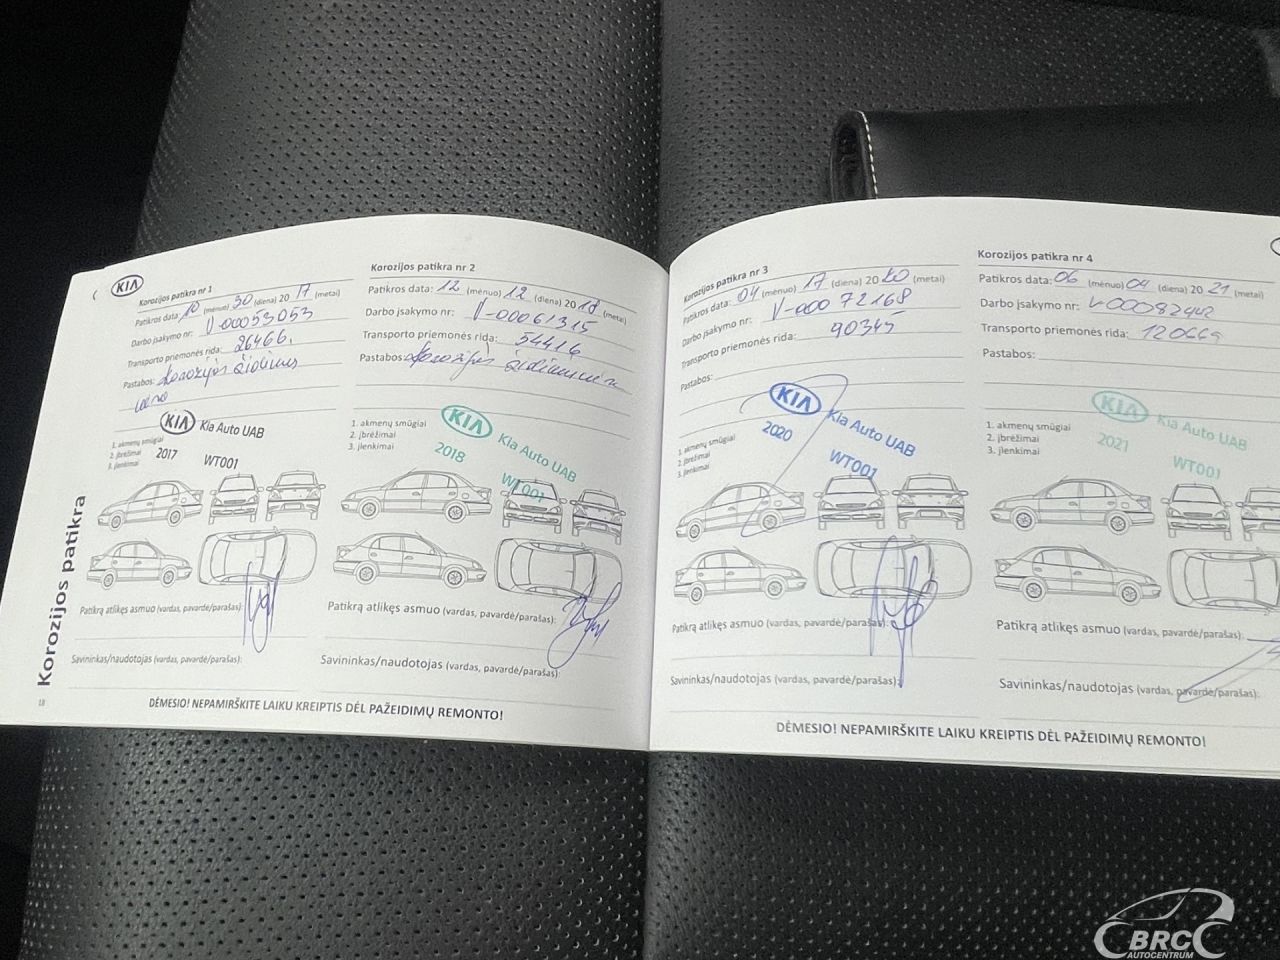 KIA
Korozijos patikra nr 1
Patikros data: 10 (mėnuo) 30 (diena) 20 17 (metai)
Darbo įsakymo nr: V-00053053
Transporto priemonės rida: 26466.
Pastabos: Korozijos židinius
KIA Kia Auto UAB
2017 WT001
1. akmenų smūgiai
2. įbrėžimai
3. įlenkimai
Patikrą atlikęs asmuo (vardas, pavardė/parašas):
Savininkas/naudotojas (vardas, pavardė/parašas):
Korozijos patikra nr 2
Patikros data: 12 (mėnuo) 12 (diena) 20 18 (metai)
Darbo įsakymo nr: V-00061315
Transporto priemonės rida: 54416
Pastabos: Korozijos
KIA Kia Auto UAB
2018 WT001
1. akmenų smūgiai
2. įbrėžimai
3. įlenkimai
Patikrą atlikęs asmuo (vardas, pavardė/parašas):
Savininkas/naudotojas (vardas, pavardė/parašas):
Korozijos patikra
18
DĖMESIO! NEPAMIRŠKITE LAIKU KREIPTIS DĖL PAŽEIDIMŲ REMONTO!
Korozijos patikra nr 3
Patikros data: 04 (mėnuo) 17 (diena) 20 20 (metai)
Darbo įsakymo nr: V-00072168
Transporto priemonės rida: 90345
Pastabos:
KIA Kia Auto UAB
2020 WT001
1. akmenų smūgiai
2. įbrėžimai
3. įlenkimai
Patikrą atlikęs asmuo (vardas, pavardė/parašas):
Savininkas/naudotojas (vardas, pavardė/parašas):
Korozijos patikra nr 4
Patikros data: 06 (mėnuo) 04 (diena) 20 21 (metai)
Darbo įsakymo nr:
Transporto priemonės rida:
Pastabos:
KIA Kia Auto UAB
2021 WT001
1. akmenų smūgiai
2. įbrėžimai
3. įlenkimai
Patikrą atlikęs asmuo (vardas, pavardė/parašas):
Savininkas/naudotojas (vardas, pavardė/parašas):
DĖMESIO! NEPAMIRŠKITE LAIKU KREIPTIS DĖL PAŽEIDIMŲ REMONTO!
BRC
AUTOCENTRUM